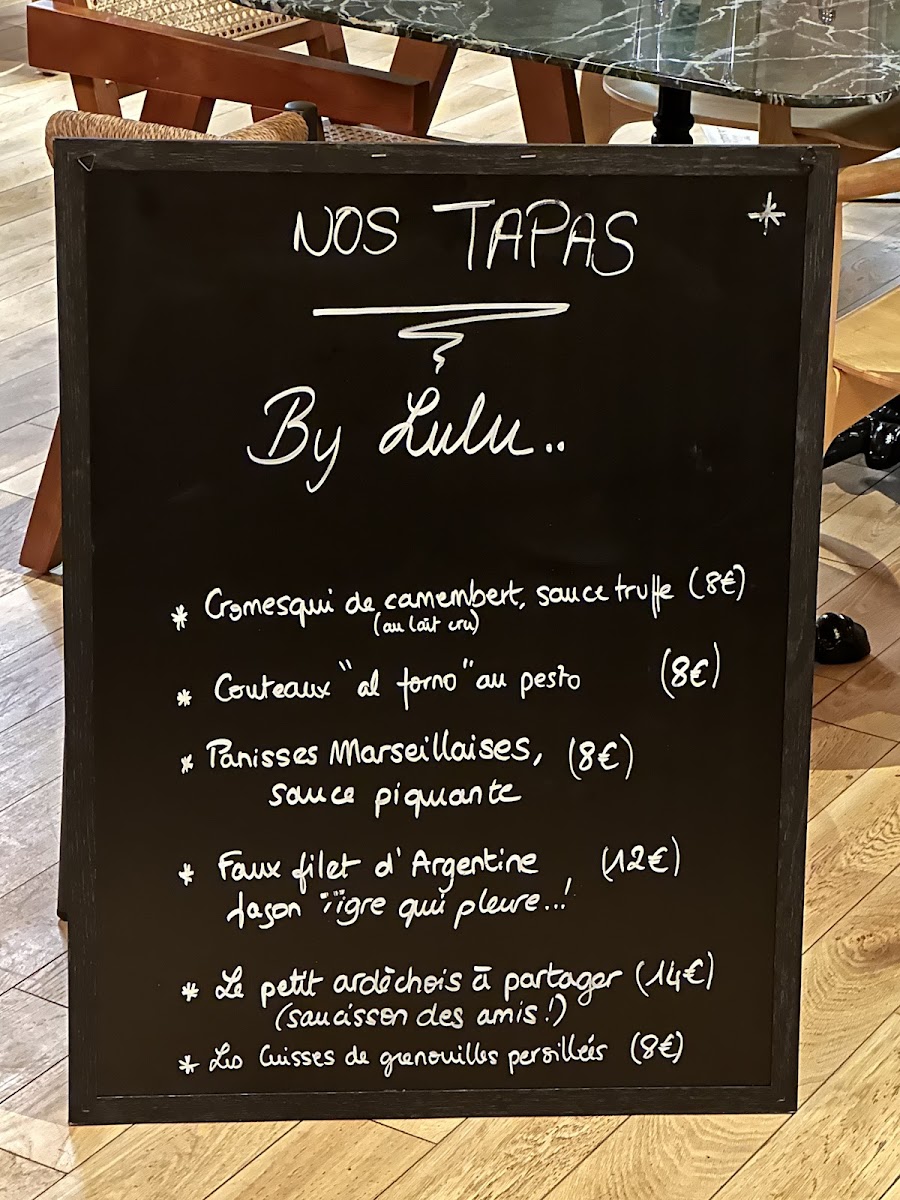 NOS TAPAS
By Lulu..
* Cromesqui de camembert, sauce truffe (8€)
(au lait cru)
* Couteaux "al forno" au pesto (8€)
* Panisses Marseillaises, (8€)
sauce piquante
* Faux filet d'Argentine, (12€)
façon Tigre qui pleure...!
* Le petit ardèchois à partager (14€)
(saucisson des amis!)
* Les Cuisses de grenouilles persillées (8€)